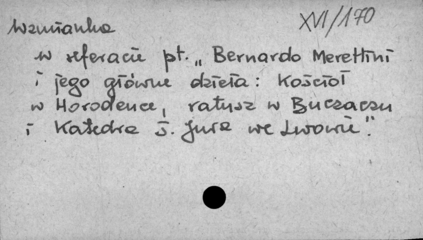 XVI/170
Wzmianka
w referacie pt. „Bernardo Merettini
i jego główne dzieła: Kościół
w Horodence, ratusz w Buczaczu
i Katedra ś. Jura we Lwowie".